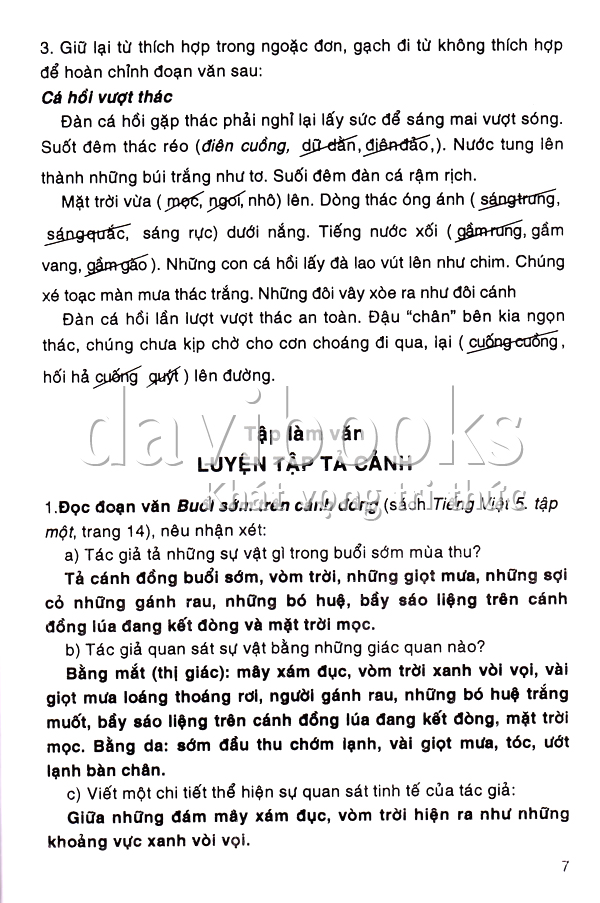 3. Giữ lại từ thích hợp trong ngoặc đơn, gạch đi từ không thích hợp
để hoàn chỉnh đoạn văn sau:
Cá hồi vượt thác
Đàn cá hồi gặp thác phải nghỉ lại lấy sức để sáng mai vượt sóng.
Suốt đêm thác réo (điên cuồng, dữ dằn, điên đảo,). Nước tung lên
thành những búi trắng như tơ. Suối đêm đàn cá rậm rịch.
Mặt trời vừa ( mọc, ngoi, nhô) lên. Dòng thác óng ánh ( sáng trưng,
sáng quắc, sáng rực) dưới nắng. Tiếng nước xối ( gầm rung, gầm
vang, gầm gào ). Những con cá hồi lấy đà lao vút lên như chim. Chúng
xé toạc màn mưa thác trắng. Những đôi vây xòe ra như đôi cánh
Đàn cá hồi lần lượt vượt thác an toàn. Đậu “chân” bên kia ngọn
thác, chúng chưa kịp chờ cho cơn choáng đi qua, lại ( cuống cuồng ,
hối hả cuống quýt ) lên đường.
davibooks
Tập làm văn
LUYỆN TẬP TẢ CẢNH
Khát vọng tri thức
1.Đọc đoạn văn Buổi sớm trên cánh đồng (sách Tiếng Việt 5. tập
một, trang 14), nêu nhận xét:
a) Tác giả tả những sự vật gì trong buổi sớm mùa thu?
Tả cánh đồng buổi sớm, vòm trời, những giọt mưa, những sợi
cỏ những gánh rau, những bó huệ, bầy sáo liệng trên cánh
đồng lúa đang kết đòng và mặt trời mọc.
b) Tác giả quan sát sự vật bằng những giác quan nào?
Bằng mắt (thị giác): mây xám đục, vòm trời xanh vòi vọi, vài
giọt mưa loáng thoáng rơi, người gánh rau, những bó huệ trắng
muốt, bầy sáo liệng trên cánh đồng lúa đang kết đòng, mặt trời
mọc. Bằng da: sớm đầu thu chớm lạnh, vài giọt mưa, tóc, ướt
lạnh bàn chân.
c) Viết một chi tiết thể hiện sự quan sát tinh tế của tác giả:
Giữa những đám mây xám đục, vòm trời hiện ra như những
khoảng vực xanh vòi vọi.
7